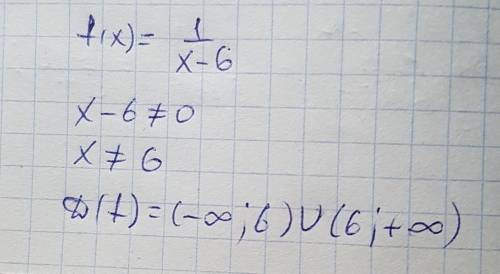 f(x) = 1/(x-6)
x-6≠0
x≠6
D(f)=(-∞;6)∪(6;+∞)